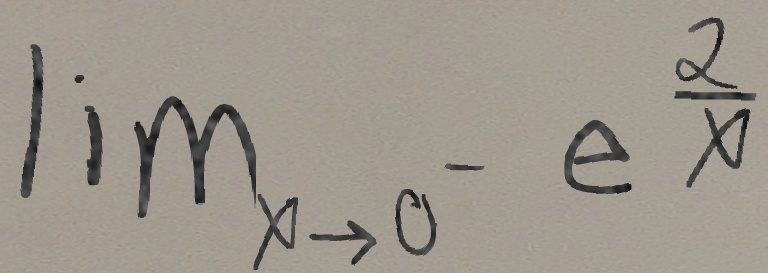 lim_{x→0^-} e^{\frac{2}{x}}